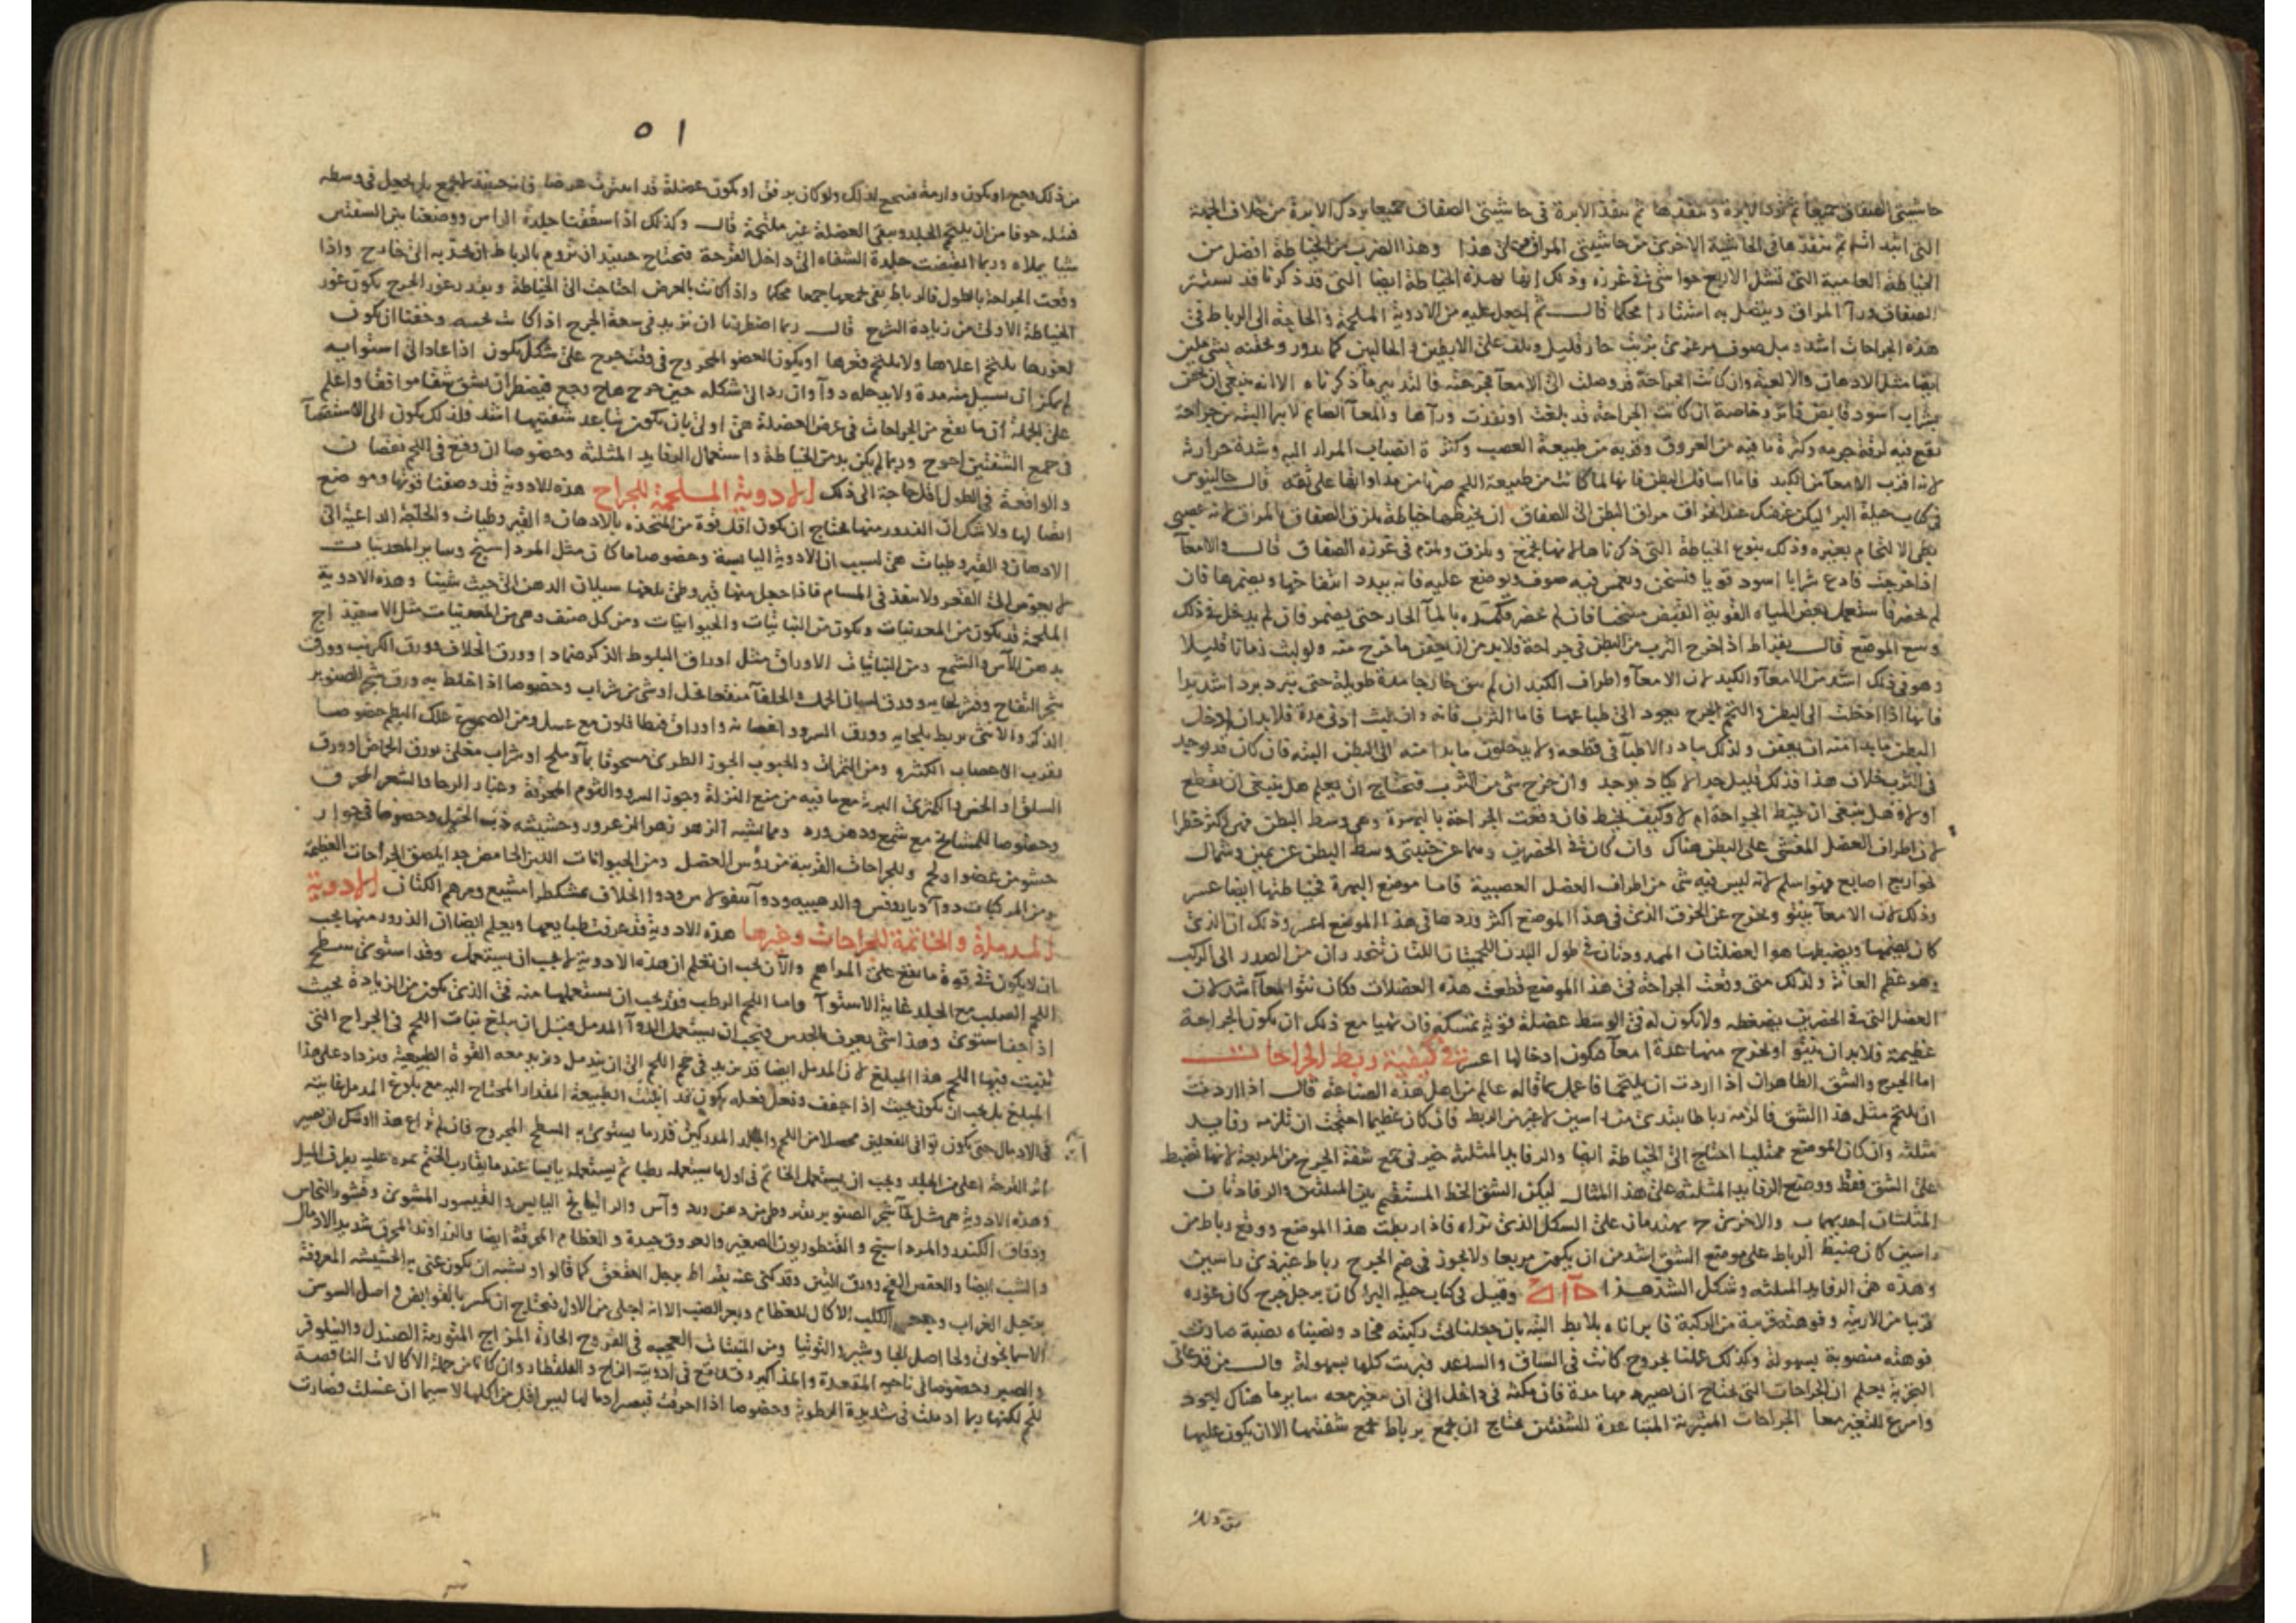 حاشيتي الصفاق جميعا ثم ترد الابرة وتنفذها ثم تنفذ الابرة في حاشيتي الصفاق جميعا وترد الابرة من خلاف الجهة
التي ابتدأت ثم تنفذها في الحاشية الاخرى من حاشيتي المراق وعلى هذا وهذا الضرب من الخياطة افضل من
الخياطة العامية التي تشل الاربع حواشي في غرزة وذلك انها بهذه الخياطة ايضا التي قد ذكرنا قد يستتر
الصفاق وراء المراق ويتصل به استتارا محكما قال ثم اجعل عليه من الادوية الملحمة والحاجة الى الرباط في
هذه الجراحات اشد وبل صوف مرعزى بزيت حار قليل ويلف على الابطين والحالبين كما يدور وتحقنه بشي ملين
ايضا مثل الادهان والالعبة وان كانت الجراحة قد وصلت الى الامعا فجرحته فالتدبير ما ذكرناه الا انه ينبغي ان يحقن
بشراب اسود قابض فاتر وخاصة ان كانت الجراحة قد بلغت او نفذت وراها والمعا الصايم لا يبرا البتة من جراحة
تقع فيه لرقة جرمه وكثرة ما فيه من العروق وقربه من طبيعة العصب وكثرة انصباب المرار اليه وشدة حرارته
لانه اقرب الامعا من الكبد فاما اسافل البطن فانها لما كانت من طبيعة اللحم صرنا من مداواتها على ثقة قال جالينوس
في كتاب حيلة البر ليكن غرضك عند انخراق مراق البطن الى الصفاق ان تخيطها خياطة يلزق الصفاق بالمراق لانه عصبي
بطي الالتحام بغيره وذلك بنوع الخياطة التي ذكرناها لانها تجمع وتلزق وتلزم في غرزه الصفاق قال والامعا
اذا خرجت فادع شرابا اسود قويا فتسخن ويغمس فيه صوف ويوضع عليه فانه يبدد انتفاخها ويضمرها فان
لم يحضر فاستعمل بعض المياه القوية القبض مسخنا فان لم يحضر فكمده بالما الحار حتى يضمر فان لم يدخل في ذلك
وسع الموضع قال بقراط اذا خرج الثرب من البطن في جراحة ولابد من ان يعفن ما خرج منه ولو لبث زمانا قليلا
وهو في ذلك اشد من الامعا والكبد لان الامعا واطراف الكبد ان لم يبق خارجا مدة طويلة حتى تبرد بردا شديدا
فانها اذا دخلت الى البطن والتحم الجرح يعود الى طباعها فاما الثرب فانه وان لبث ادنى مدة فلا بد ان ادخل
البطن ما بدا منه ان يعفن ولذلك بادر الاطبا في قطعه ولا يدخلون ما بدا منه الى البطن البتة فان كان قد يوجد
في الثرب خلاف هذا فذلك قليل جدا لا يكاد يوجد وان خرج شي من الثرب فتحتاج ان يعلم هل ينبغي ان يقطع
او لا وهل ينبغي ان يخيط الجراحة ام لا وكيف يخيط فان وقعت الجراحة بالبهرة وهي وسط البطن فهي اكثر خطرا
لان اطراف العضل المغشى على البطن هناك وان كان في الخضرين وهما عن جنبتي وسط البطن عن يمين وشمال
نحو اربع اصابع فهو اسلم لانه ليس فيه شي من اطراف العضل العصبية فاما موضع البهرة فخياطتها ايضا عسر
وذلك لان الامعا تنتو وتخرج عن الخرق الذي في هذا الموضع اكثر وردها في هذا الموضع اعسر وذلك ان الذي
كان يضمها ويضبطها هو العضلتان الممدودتان في طول البدن اللحميتان اللتان تنحدران من الصدر الى الركب
وهو عظم العانة ولذلك متى وقعت الجراحة في هذا الموضع قطعت هذه العضلات فكان نتو المعا اشد لان
العضل التي في الخضرين يضغطه ولا يكون له في الوسط عضلة قوية تمسكه فان تهيا مع ذلك ان يكون الجراحة
عظيمة فلابد ان ينتو او يخرج منها عدة امعا فيكون ادخالها اعسر في كيفية ربط الجراحات
اما الجرح والشق الظاهران اذا اردت ان يلتحما فاعمل بما قاله عالم من اهل هذه الصناعة قال اذا اردت
ان يلتحم مثل هذا الشق فالزمه رباطا يبتدي من راسين لا غير من الربط فان كان عظيما احتجت ان تلزمه رفايد
مثلثة وان كان الموضع ممتليا احتاج الى الخياطة ايضا والرفايد المثلثة خير في جمع شفة الجرح من المربعة لانها تضبط
على الشق فقط ووضع الرفايد المثلثة على هذا المثال ليكن الشق الخط المستقيم بين المثلثين والرفادتان
المثلثتان احديهما ب والاخرى ج يهندمان على الشكل الذي تراه فاذا ربطت هذا الموضع ووقع رباط من
راسين كان ضبط الرباط على موضع الشق اشد من ان يكون مربعا ولا يجوز في ضم الجرح رباط غير ذي راسين
وهذه هي الرفايد المثلثة وشكل الشد هذا وقيل في كتاب حيلة البر كان برجل جرح كان غوره
قريبا من الاربية وفوهته قريبة من الركبة فابراناه بلا بط البتة بان جعلنا تحت ركبته مخاد ونصبناه نصبة صارت
فوهته منصوبة بسهولة وكذلك عملنا بجروح كانت في الساق والساعد فبريت كلها بسهولة وقال من قد عانى
التجربة يعلم ان الجراحات التي يحتاج ان يصبر بها مدة فان مكثه في داخل الى ان يتغير معه ساير ما هناك اجود
واسرع للتغير معا الجراحات المتبرية المتباعدة الشفتين يحتاج ان تجمع برباط يجمع شفتيها الا ان يكون عليها
من ذلك
٥١
من ذلك وجع او يكون وارمة فتتوجع لذلك ولو كان برفق او يكون عضلة قد انبترت عرضا فانه حينئذ لا يجمع بل يجعل في وسطه
فتيلة خوفا من ان يلتحم الجلد ويبقى العضلة غير ملتحمة قال وكذلك اذا سقفنا جلدة الراس ووضعنا بين الشفتين
شيا يملاه وربما انقبضت جلدة الشفاه الى داخل القرحة فتحتاج حينئذ ان تروم بالرباط ان تجذبه الى خارج واذا
وقعت الجراحة بالطول فالرباط يفي بجمعها جمعا محكما واذا كانت بالعرض احتاجت الى الخياطة وبقدر غور الجرح يكون غور
الخياطة الاولى من زيادة الشرح قال ربما اضطررنا ان نزيد في سعة الجرح اذا كانت نخسة وخفنا ان يكون
لغورها يلتحم اعلاها ولا يلتحم قعرها او يكون العضو المجروح في وقت جرح على شكل يكون اذا عاد الى استوايه
لم يمكن ان يسيل منه مدة ولا يدخله دوا وان رد الى شكله حين جرح هاج وجع فيضطر ان يشق شقا موافقا واعلم
على الجملة ان ما يقع من الجراحات في عرض العضلة هي اولى بان يكون تباعد شفتيها اشد فلذلك يكون الى الاستقصا
في جمع الشفتين احوج وربما لم يكن بد من الخياطة واستعمال الرفايد المثلثة وخصوصا ان وقع في اللحم نقصان
والواقعة في الطول اقل حاجة الى ذلك الادوية الملحمة للجراح هذه الادوية قد وصفنا قوتها وموضع
ايضا لها ولا شك ان الذرور منها يحتاج ان يكون اقل قوة من المتخذة بالادهان والقيروطيات والحاجة الداعية الى
الادهان والقيروطيات هي لسبب ان الادوية اليابسة وخصوصا ما كان مثل المرداسنج وساير المعدنيات
لا يغوص الى القعر ولا ينفذ في المسام فاذا جعل منها قيروطي بلغها سيلان الدهن الى حيث شينا وهذه الادوية
الملحمة قد يكون من المعدنيات ويكون من النباتيات والحيوانيات ومن كل صنف وهي من المعدنيات مثل الاسفيذاج
بدهن الاس والشمع ومن النباتيات الاوراق مثل اوراق البلوط الذكر ضمادا وورق الخلاف وورق الكرنب وورق
شجر التفاح وقشر لحايه وورق لسان الحمل والخلفا منقعا بخل او شي من شراب وخصوصا اذا خلط به ورق شجر الصنوبر
الذكر والانثى يربط بلحايه وورق السرو واغصانه واوراق قنطافلون مع عسل ومن الصموغ علك البطم خصوصا
بقرب الاعصاب الكثيرة ومن الثمرات والحبوب الجوز الطري مسحوقا بما وملح او بشراب مغلى بورق الحماض او ورق
السلق او الخس والكمثرى البرية مع ما فيه من منع النزلة وجوز السرو والثوم المحرقة وغبار الرحا والشعر المحرق
وخصوصا للمشايخ مع شمع ودهن ورد ومما يشبه الزهر زهر الزعرور وحشيشة ذنب الخيل وخصوصا في جوار
حشو من عضو او لحم وللجراحات القريبة من رؤس العضل ومن الحيوانات اللبن الحامض جدا يلصق الجراحات العظيمة
ومن المركبات دوا ديابوقس والذهبية ودوا بنقولاس ودوا الخلاف بمشكطرامشيع ومرهم الكتان الادوية
المدملة والخاتمة للجراحات وغيرها هذه الادوية قد عرفت طبايعها ويعلم ايضا ان الذرور منها يجب
ان لا يكون في قوة ما يقع على المراهم والان يجب ان تعلم ان هذه الادوية لا يجب ان يستعمل وقد استوى سطح
اللحم الصلب مع الجلد غاية الاستوا واما اللحم الرطب فقد يجب ان يستعملها منه في الذي يكون من الزيادة بحيث
اذا جف استوى وهذا شي يعرف بالحدس فيجب ان يستعمل الدوا المدمل قبل ان يبلغ نبات اللحم في الجراح التي
ينبت فيها اللحم هذا المبلغ لان المدمل ايضا قد يزيد في حجم اللحم الى ان يندمل ويزيد معه القوة الطبيعية ويزداد على هذا
المبلغ بل يجب ان يكون بحيث اذا جفف وفعل فعله يكون قد ابلغت الطبيعة المقدار المحتاج اليه مع بلوغ المدمل غايته
في الادمال حتى يكون توافى الفعلين محصلا من اللحم والجلد المدركين قدر ما يستوي به السطح المجروح فان لم يراع هذا اوشك ان يصير
اثر القرحة اعلى من الجلد ويجب ان يستعمل الخاتم في اولها يستعمله رطبا ثم يستعمله يابسا عند ما يقارب الختم بمره عليه بطرف الميل
وهذه الادوية هي مثل لحا شجر الصنوبر بقيروطي من دهن ورد وآس والراتيانج اليابس والقيسور المشوى وقشور النحاس
ودقاق الكندر والمرداسنج والقنطوريون الصغير والعروق جيدة والعظام المحرقة ايضا والزراوند المحرق شديد الادمال
والشب ايضا والعفص الفج وورق التين وقد كنى عنه بقراط برجل العقعق كما قالوا ويشبه ان يكون عنى به الحشيشة المعروفة
برجل الغراب وبعر الكلب الاكال للعظام وبعر الضب الا انه اجلى من الاول فتحتاج ان تكسر بالقوابض واصل السوسن
الاسمانجوني ولحا اصل الجاوشير والتوتيا ومن المنبتات العجيبة في القروح الحارة المزاج المتورمة الصندل والنيلوفر
والصبر وخصوصا في ناحية المقعدة والمذاكير وقد يقع في ادويته الزاج والقلقطار وان كانا من جملة الاكالات الناقصة
للحم لكنها ربما ادملت في شديدة الرطوبة وخصوصا اذا احرقت فيصير ادمالها ليس باقل من اكلها لا سيما ان غسلت فصارت